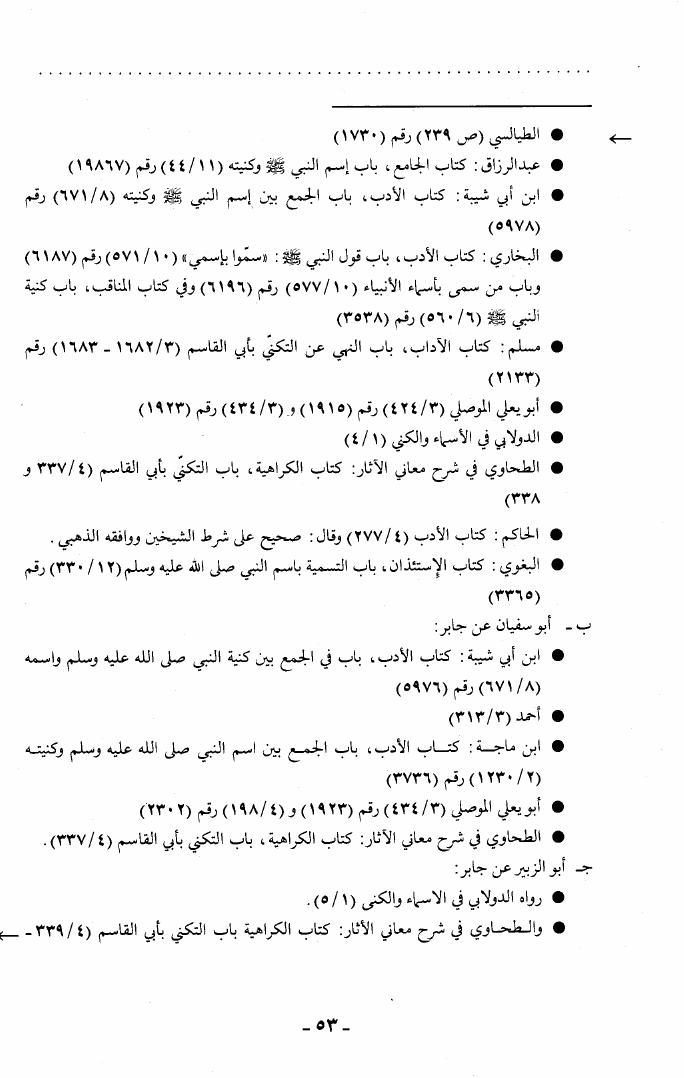 ← ● الطيالسي (ص ٢٣٩) رقم (١٧٣٠)
● عبدالرزاق: كتاب الجامع، باب إسم النبي ﷺ وكنيته (٤٤/١١) رقم (١٩٨٦٧)
● ابن أبي شيبة: كتاب الأدب، باب الجمع بين إسم النبي ﷺ وكنيته (٦٧١/٨) رقم
(٥٩٧٨)
● البخاري: كتاب الأدب، باب قول النبي ﷺ: «سمّوا بإسمي» (٥٧١/١٠) رقم (٦١٨٧)
وباب من سمى بأسماء الأنبياء (٥٧٧/١٠) رقم (٦١٩٦) وفي كتاب المناقب، باب كنية
النبي ﷺ (٥٦٠/٦) رقم (٣٥٣٨)
● مسلم: كتاب الآداب، باب النهي عن التكنّي بأبي القاسم (١٦٨٢/٣ - ١٦٨٣) رقم
(٢١٣٣)
● أبو يعلي الموصلي (٤٢٤/٣) رقم (١٩١٥) و (٤٣٤/٣) رقم (١٩٢٣)
● الدولابي في الأسماء والكني (٤/١)
● الطحاوي في شرح معاني الآثار: كتاب الكراهية، باب التكنّي بأبي القاسم (٣٣٧/٤ و
٣٣٨)
● الحاكم: كتاب الأدب (٢٧٧/٤) وقال: صحيح على شرط الشيخين ووافقه الذهبي.
● البغوي: كتاب الإستئذان، باب التسمية باسم النبي صلى الله عليه وسلم (٣٣٠/١٢) رقم
(٣٣٦٥)
ب - أبو سفيان عن جابر:
● ابن أبي شيبة: كتاب الأدب، باب في الجمع بين كنية النبي صلى الله عليه وسلم واسمه
(٦٧١/٨) رقم (٥٩٧٦)
● أحمد (٣١٣/٣)
● ابن ماجة: كتاب الأدب، باب الجمع بين اسم النبي صلى الله عليه وسلم وكنيته
(١٢٣٠/٢) رقم (٣٧٣٦)
● أبو يعلي الموصلي (٤٣٤/٣) رقم (١٩٢٣) و (١٩٨/٤) رقم (٢٣٠٢)
● الطحاوي في شرح معاني الأثار: كتاب الكراهية، باب التكني بأبي القاسم (٣٣٧/٤).
جـ - أبو الزبير عن جابر:
● رواه الدولابي في الاسماء والكنى (٥/١).
● والطحاوي في شرح معاني الأثار: كتاب الكراهية باب التكني بأبي القاسم (٣٣٩/٤ - ←
- ٥٣ -